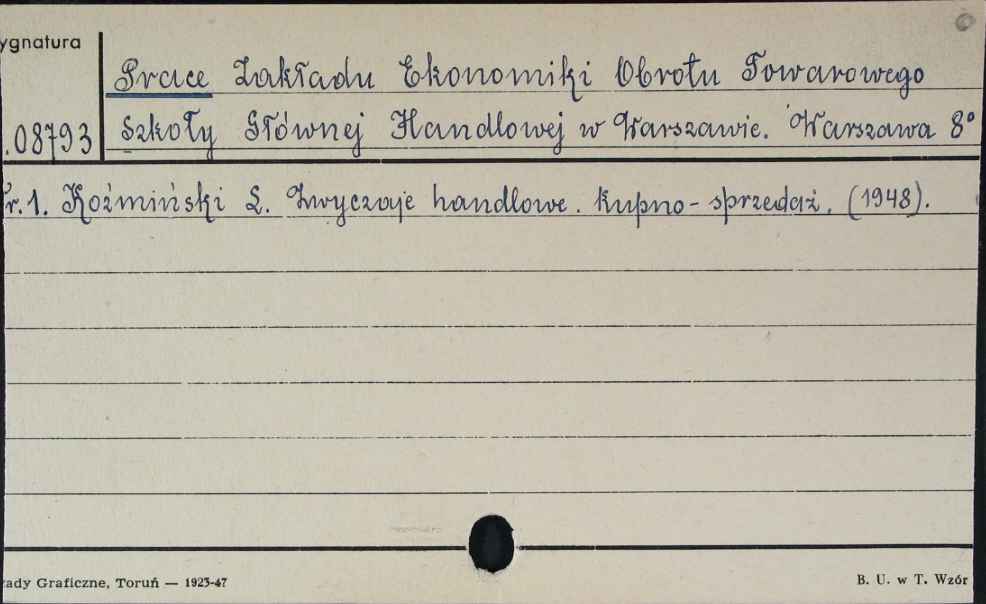 ygnatura
Prace Zakładu Ekonomiki Obrotu Towarowego
.08793 Szkoły Głównej Handlowej w Warszawie. Warszawa 8°
r.1. Koźmiński L. Zwyczaje handlowe. Kupno-sprzedaż. (1948).
ady Graficzne, Toruń — 1923-47
B. U. w T. Wzór